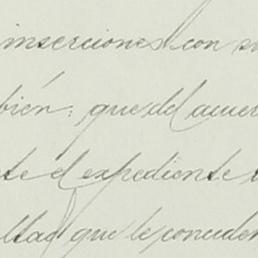 inserciones con su
bién; que del acuer
te el expediente
ltad que le conceden